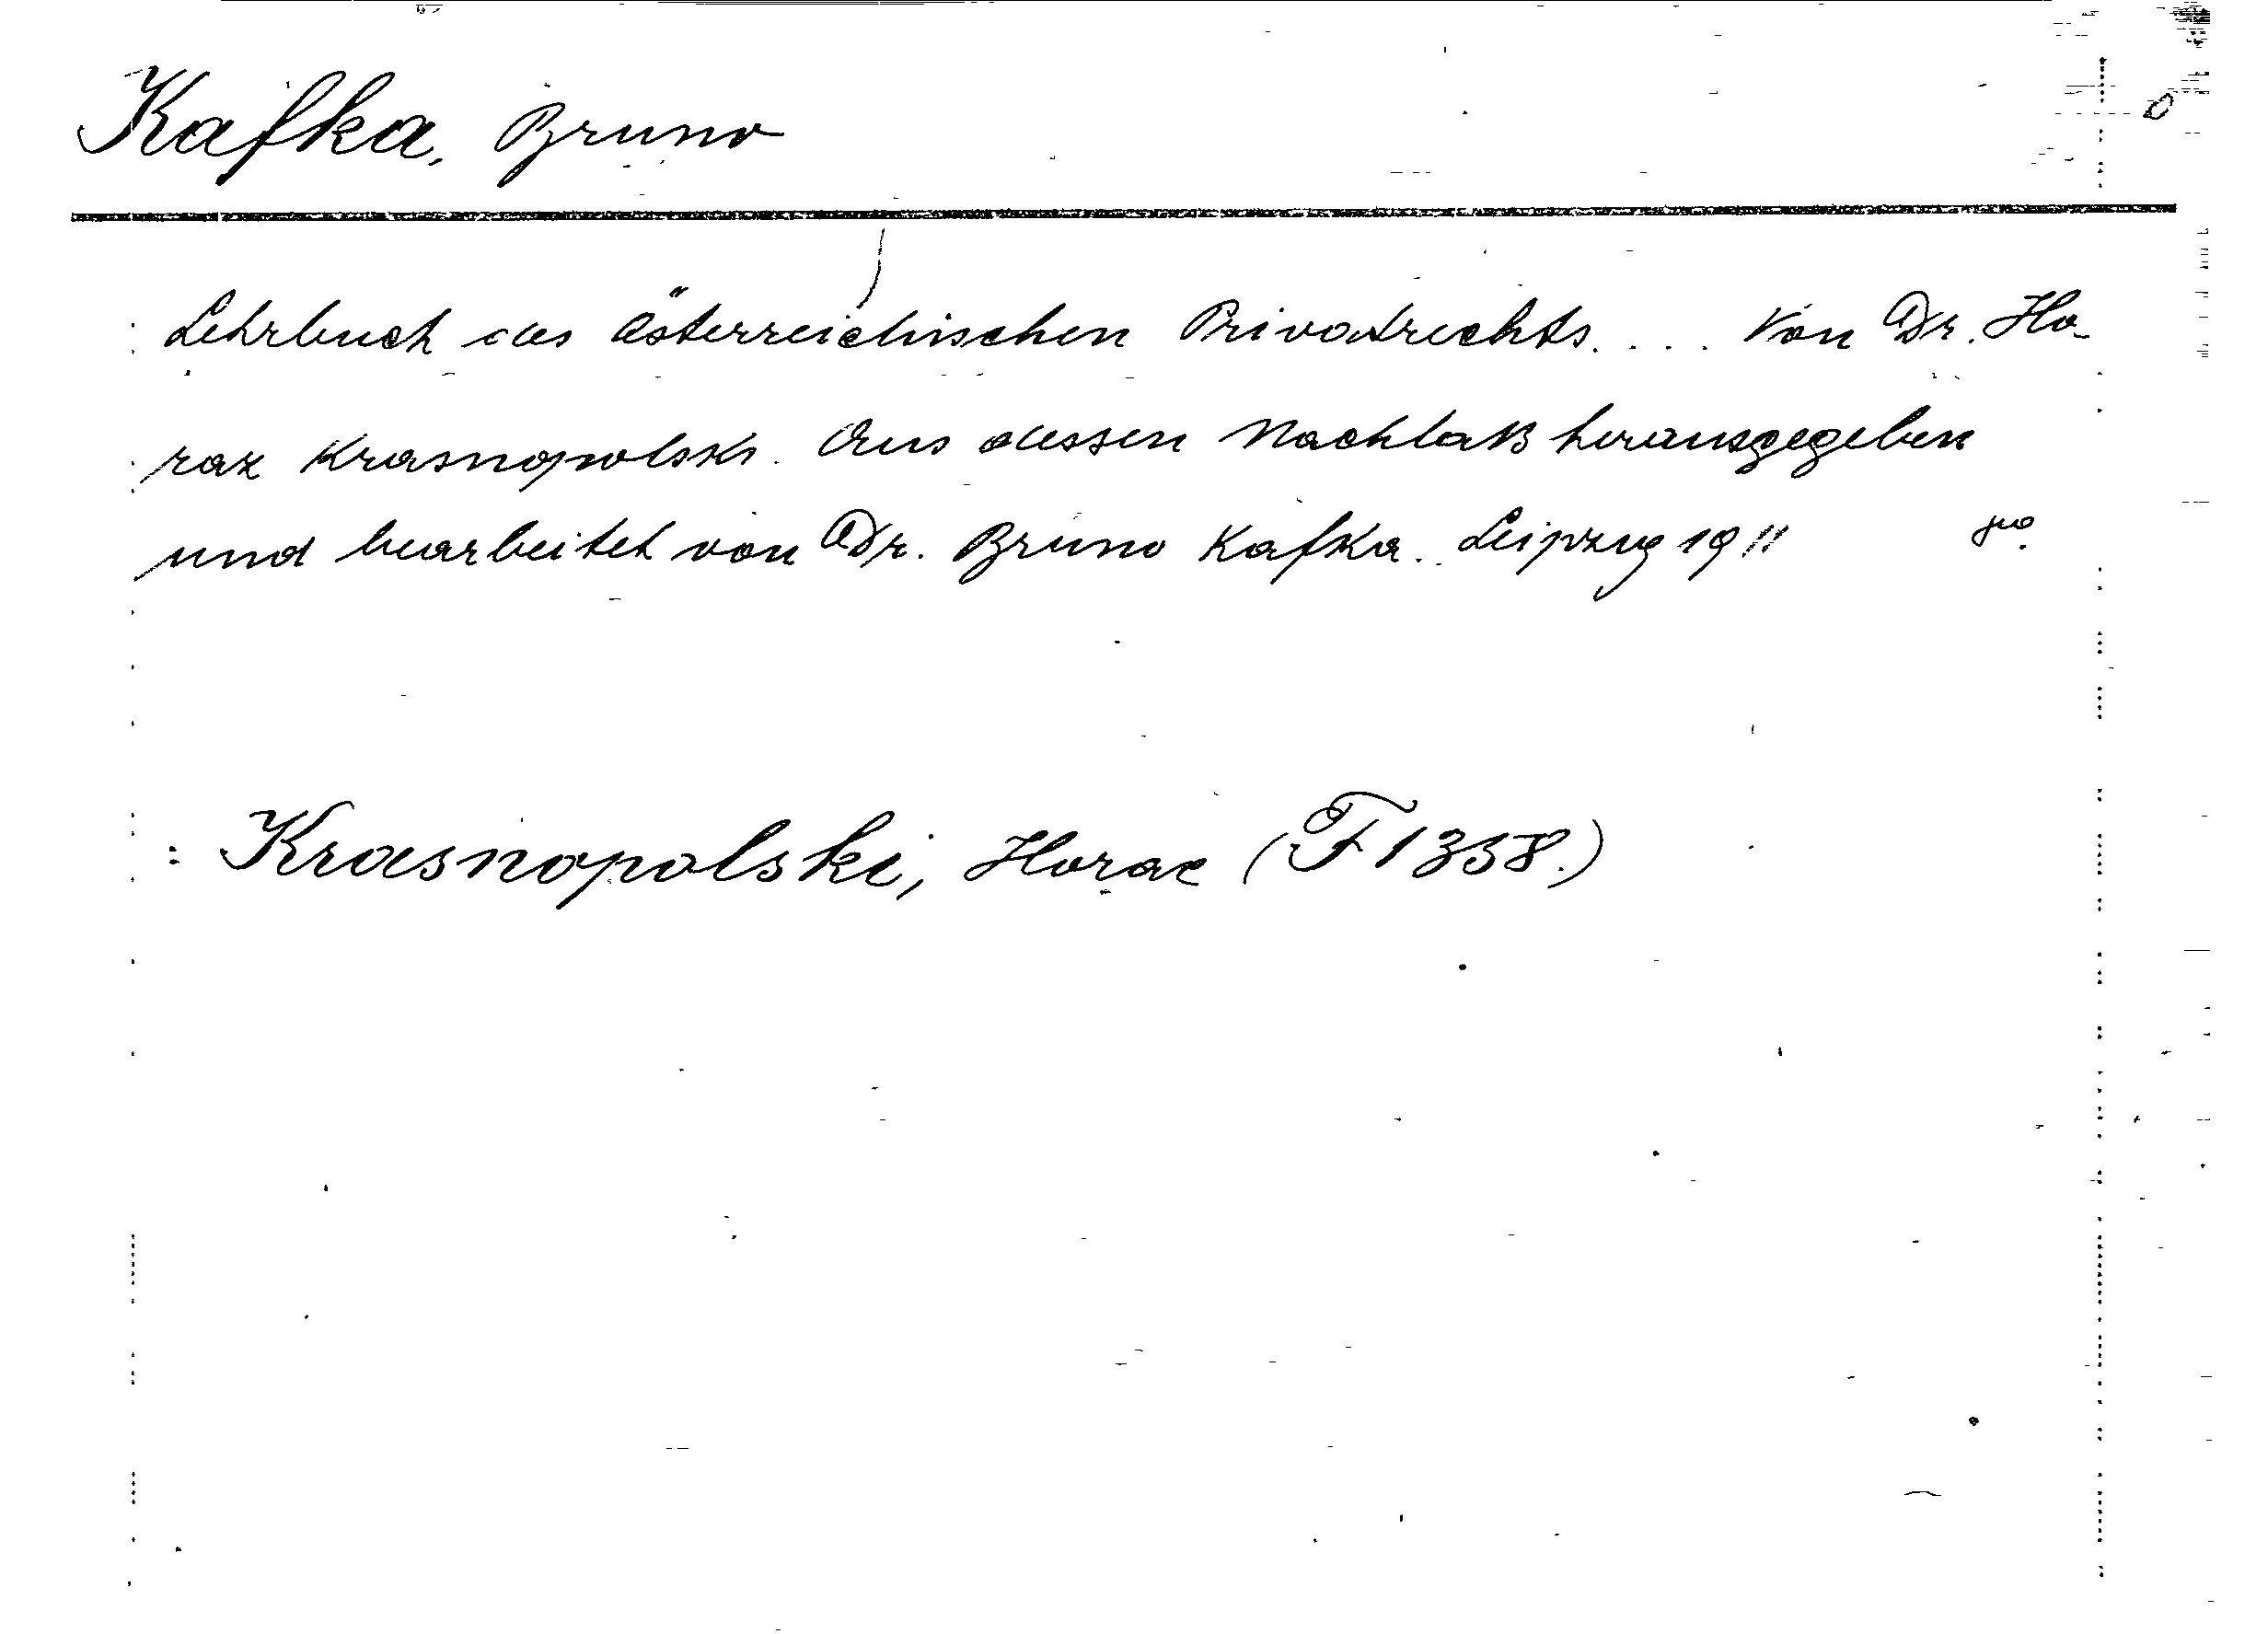 Kafka, Bruno
Lehrbuch des österreichischen Privatrechts. ... Von Dr. Ho-
raz Krasnopolski. Aus dessen Nachlaß herausgegeben
und bearbeitet von Dr. Bruno Kafka. Leipzig 1911
: Krasnopolski, Horac (F 1358.)